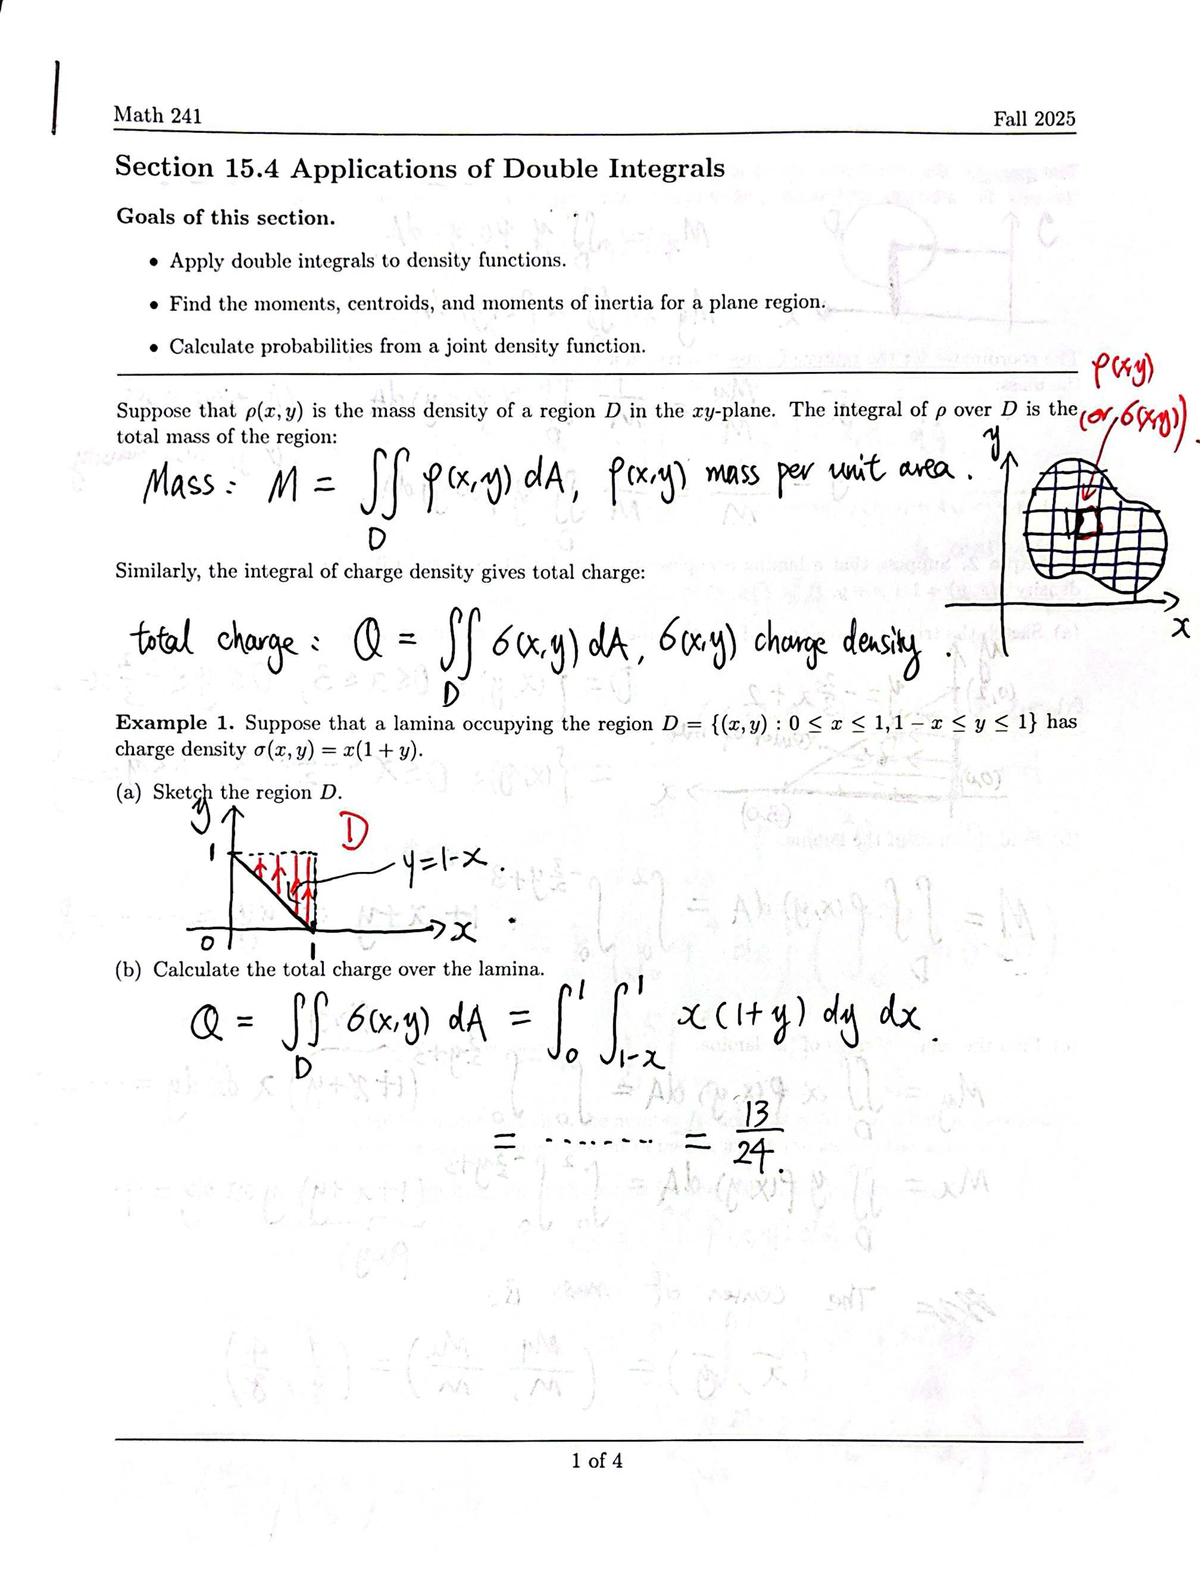 Math 241
Fall 2025
Section 15.4 Applications of Double Integrals
Goals of this section.
• Apply double integrals to density functions.
• Find the moments, centroids, and moments of inertia for a plane region.
• Calculate probabilities from a joint density function.
ρ(x,y)
(or, σ(x,y)).
Suppose that ρ(x, y) is the mass density of a region D in the xy-plane. The integral of ρ over D is the
total mass of the region:
y
Mass: M = ∬_D ρ(x,y) dA, ρ(x,y) mass per unit area.
Similarly, the integral of charge density gives total charge:
x
total charge: Q = ∬_D σ(x,y) dA, σ(x,y) charge density.
Example 1. Suppose that a lamina occupying the region D = {(x, y) : 0 ≤ x ≤ 1, 1 − x ≤ y ≤ 1} has
charge density σ(x, y) = x(1 + y).
(a) Sketch the region D.
y
D
1
y=1-x.
x
0
1
(b) Calculate the total charge over the lamina.
Q = ∬_D σ(x,y) dA = ∫_0^1 ∫_{1-x}^1 x(1+y) dy dx.
= ........ = 13/24.
1 of 4